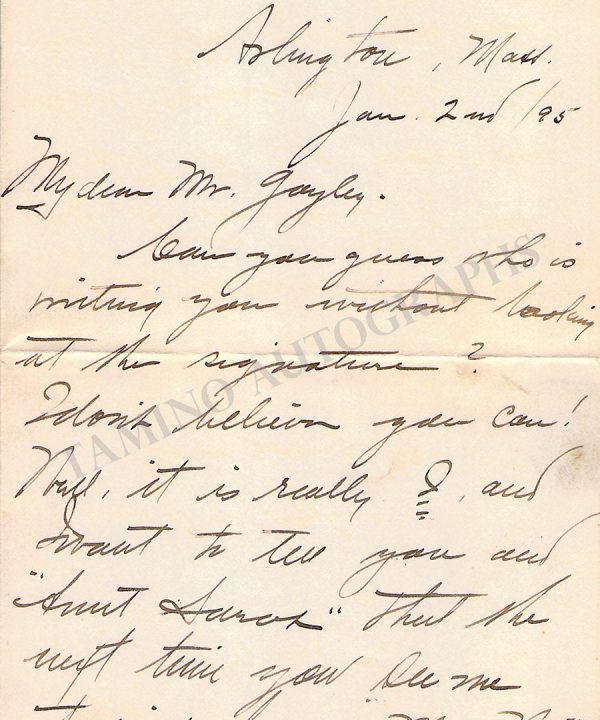 Arlington, Mass.
Jan. 2nd /95
My dear Mr. Gayley.
Can you guess who is
writing you without looking
at the signature?
I don't believe you can!
Well, it is really I, and
I want to tell you and
"Aunt Sarah" that the
next time you see me
TAMINO AUTOGRAPHS